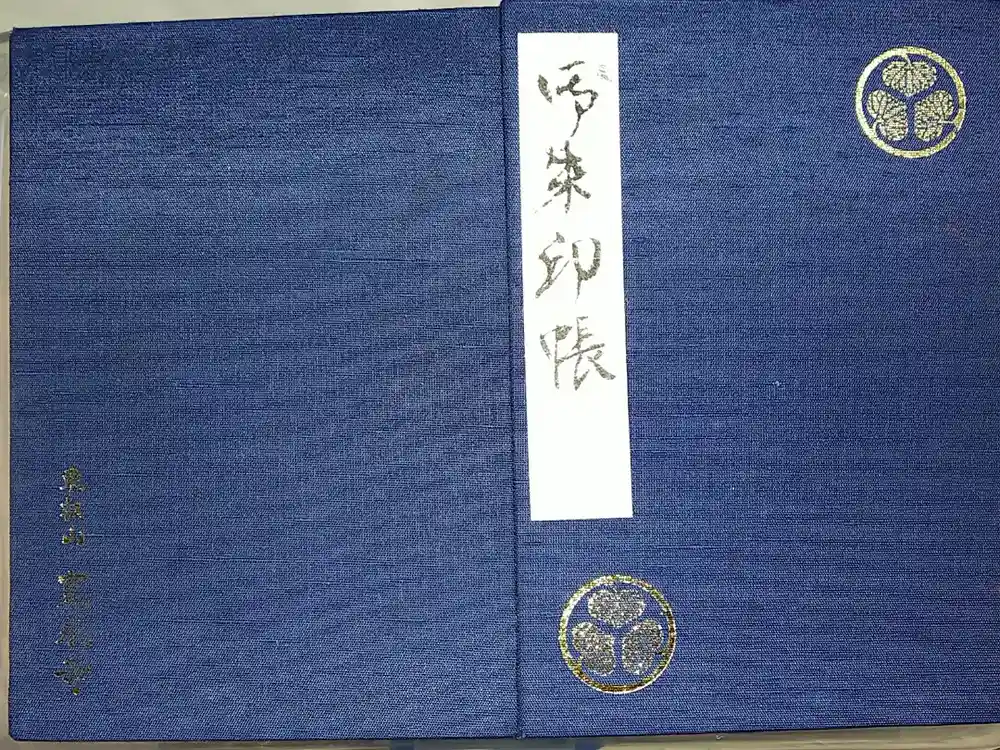 御朱印帳
東叡山 寛永寺